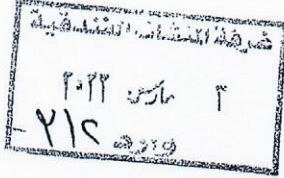 غرفة المنشآت الفندقية
٢ مارس ٢٠٢٢
وارد ٢١٢ -